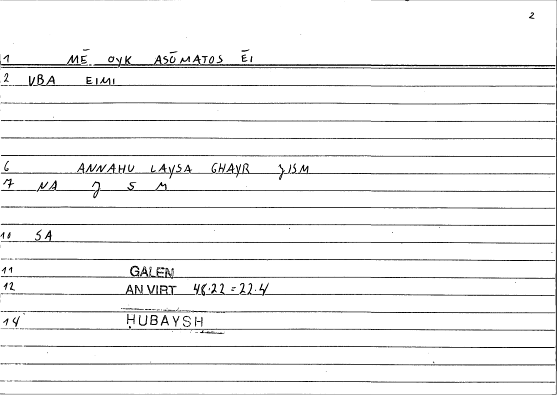 2
1 MĒ OYK ASŌMATOS ĒI
2 VBA EIMI
6 ANNAHU LAYSA GHAYR JISM
7 NA J S M
10 SA
11 GALEN
12 AN VIRT 48.22 = 22.4
14 ḤUBAYSH